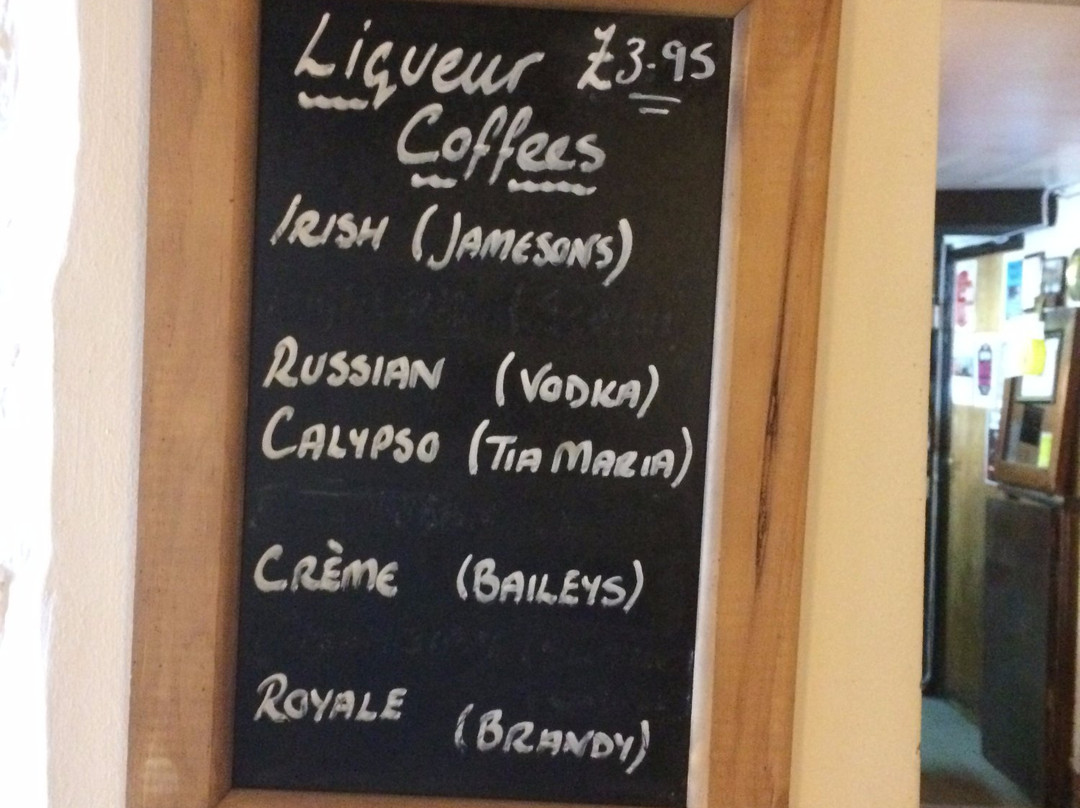 Liqueur £3.95
Coffees
IRISH (JAMESONS)
RUSSIAN (VODKA)
CALYPSO (TIA MARIA)
CRÈME (BAILEYS)
ROYALE (BRANDY)